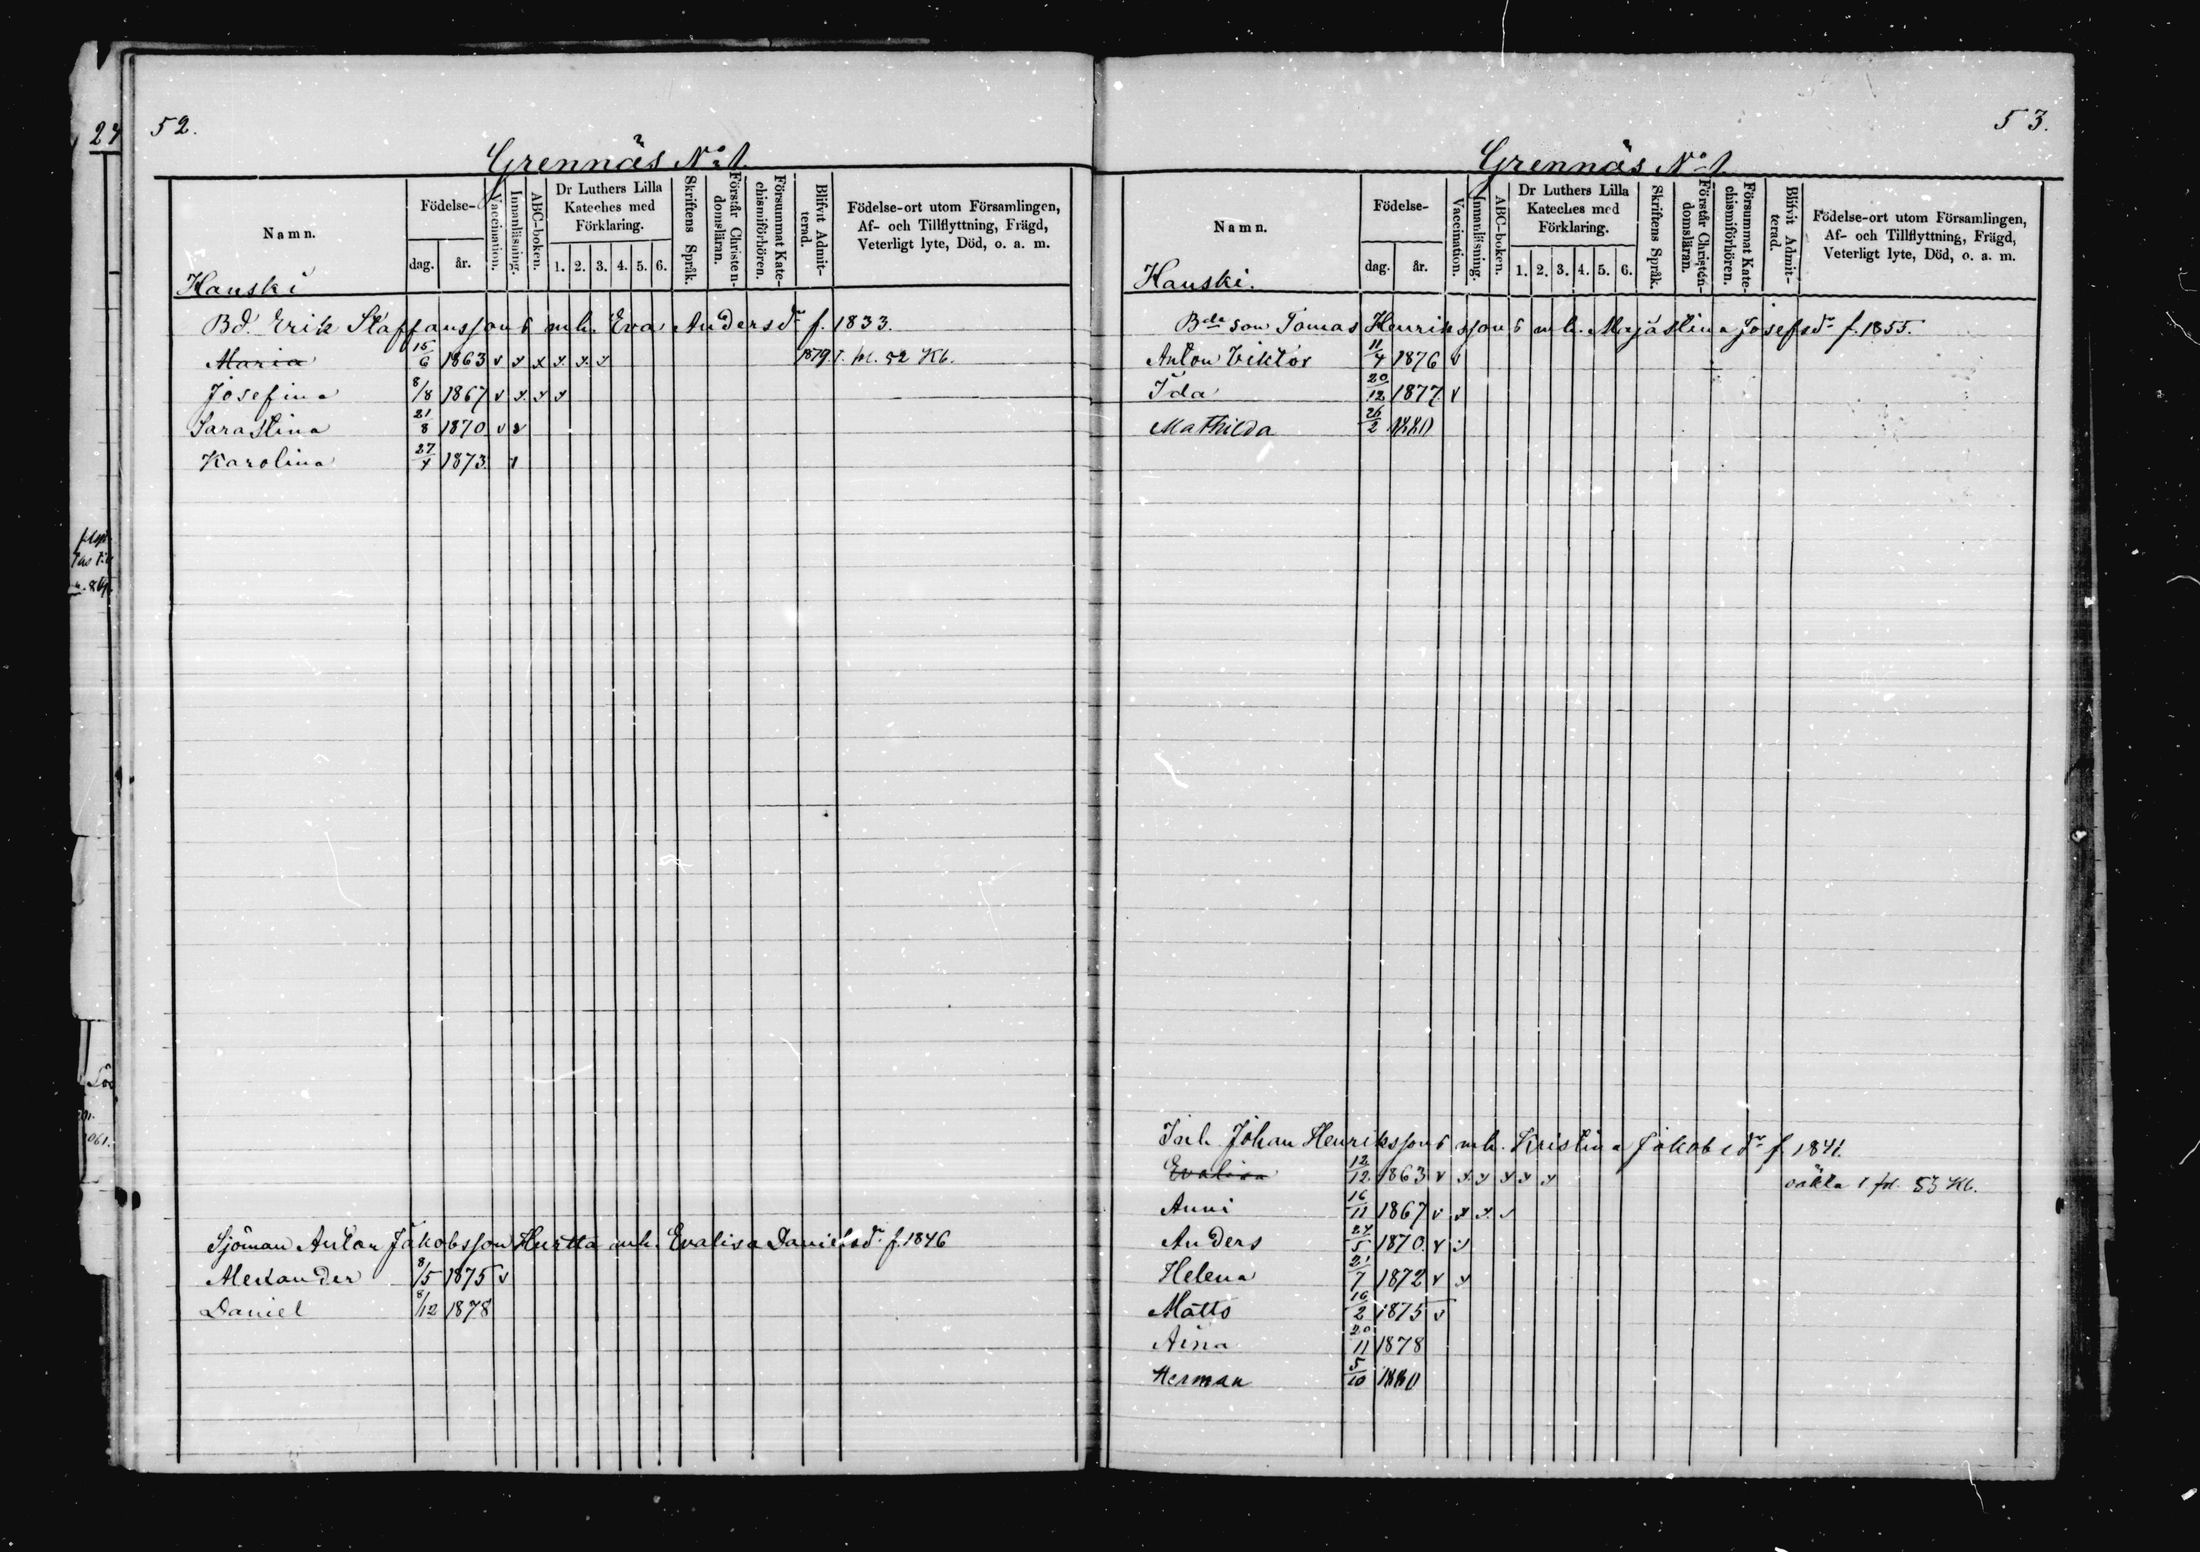 52.
Grennäs No 1.
Namn.
Födelse-
dag.
år.
Vaccination.
Innanläsning.
ABC-boken.
Dr Luthers Lilla
Kateches med
Förklaring.
1. 2. 3. 4. 5. 6.
Skriftens Språk.
Förstår Christen-
domsläran.
Försummat Kate-
chismiförhören.
Blifvit Admit-
terad.
Födelse-ort utom Församlingen,
Af- och Tillflyttning, Frägd,
Veterligt lyte, Död, o. a. m.
Hanski
Bd. Erik Staffanssons mh. Eva Andersdr f. 1833.
Maria 15/6 1863 v x x x x x 1879. fol. 52 Kb.
Josefina 8/8 1867 v x x x
Sarastina 21/8 1870 v x
Karolina 27/4 1873 x
Sjöman Anton Jakobsson Hurtta mh. Evalisa Danielsdr f. 1846
Alexander 8/5 1875 v
Daniel 8/12 1878
53.
Grennäs No 1.
Namn.
Födelse-
dag.
år.
Vaccination.
Innanläsning.
ABC-boken.
Dr Luthers Lilla
Kateches med
Förklaring.
1. 2. 3. 4. 5. 6.
Skriftens Språk.
Förstår Christen-
domsläran.
Försummat Kate-
chismiförhören.
Blifvit Admit-
terad.
Födelse-ort utom Församlingen,
Af- och Tillflyttning, Frägd,
Veterligt lyte, Död, o. a. m.
Hanski.
Bde son Tomas Henrikssons mh. Majastina Josefsdr f. 1855.
Anton Viktor 11/4 1876 v
Ida 20/12 1877 v
Mathilda 26/2 1880
Inh. Johan Henrikssons mh. Kristina Jakobsdr f. 1841.
Evalisa 12/12 1863 v x x x x x fol. 53 Kb.
Anni 16/11 1867 v x x x
Anders 24/5 1870 v x
Helena 21/7 1872 v x
Matts 16/2 1875 v
Aina 20/11 1878
Herman 5/10 1880